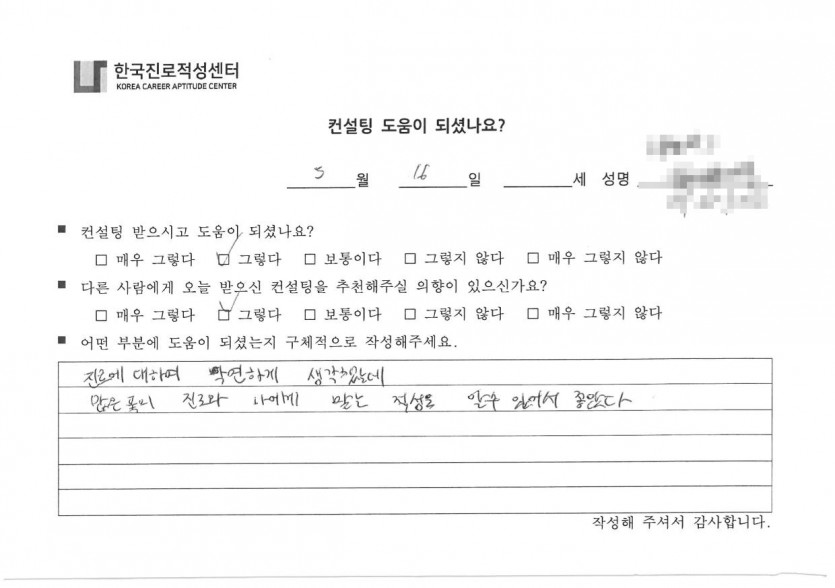 한국진로적성센터
KOREA CAREER APTITUDE CENTER
컨설팅 도움이 되셨나요?
5 월 16 일 세 성명
■ 컨설팅 받으시고 도움이 되셨나요?
□ 매우 그렇다 ☑ 그렇다 □ 보통이다 □ 그렇지 않다 □ 매우 그렇지 않다
■ 다른 사람에게 오늘 받으신 컨설팅을 추천해주실 의향이 있으신가요?
□ 매우 그렇다 ☑ 그렇다 □ 보통이다 □ 그렇지 않다 □ 매우 그렇지 않다
■ 어떤 부분에 도움이 되셨는지 구체적으로 작성해주세요.
진로에 대하여 막연하게 생각했는데
많은 폭의 진로와 나에게 맞는 적성도 알수 있어서 좋았다
작성해 주셔서 감사합니다.